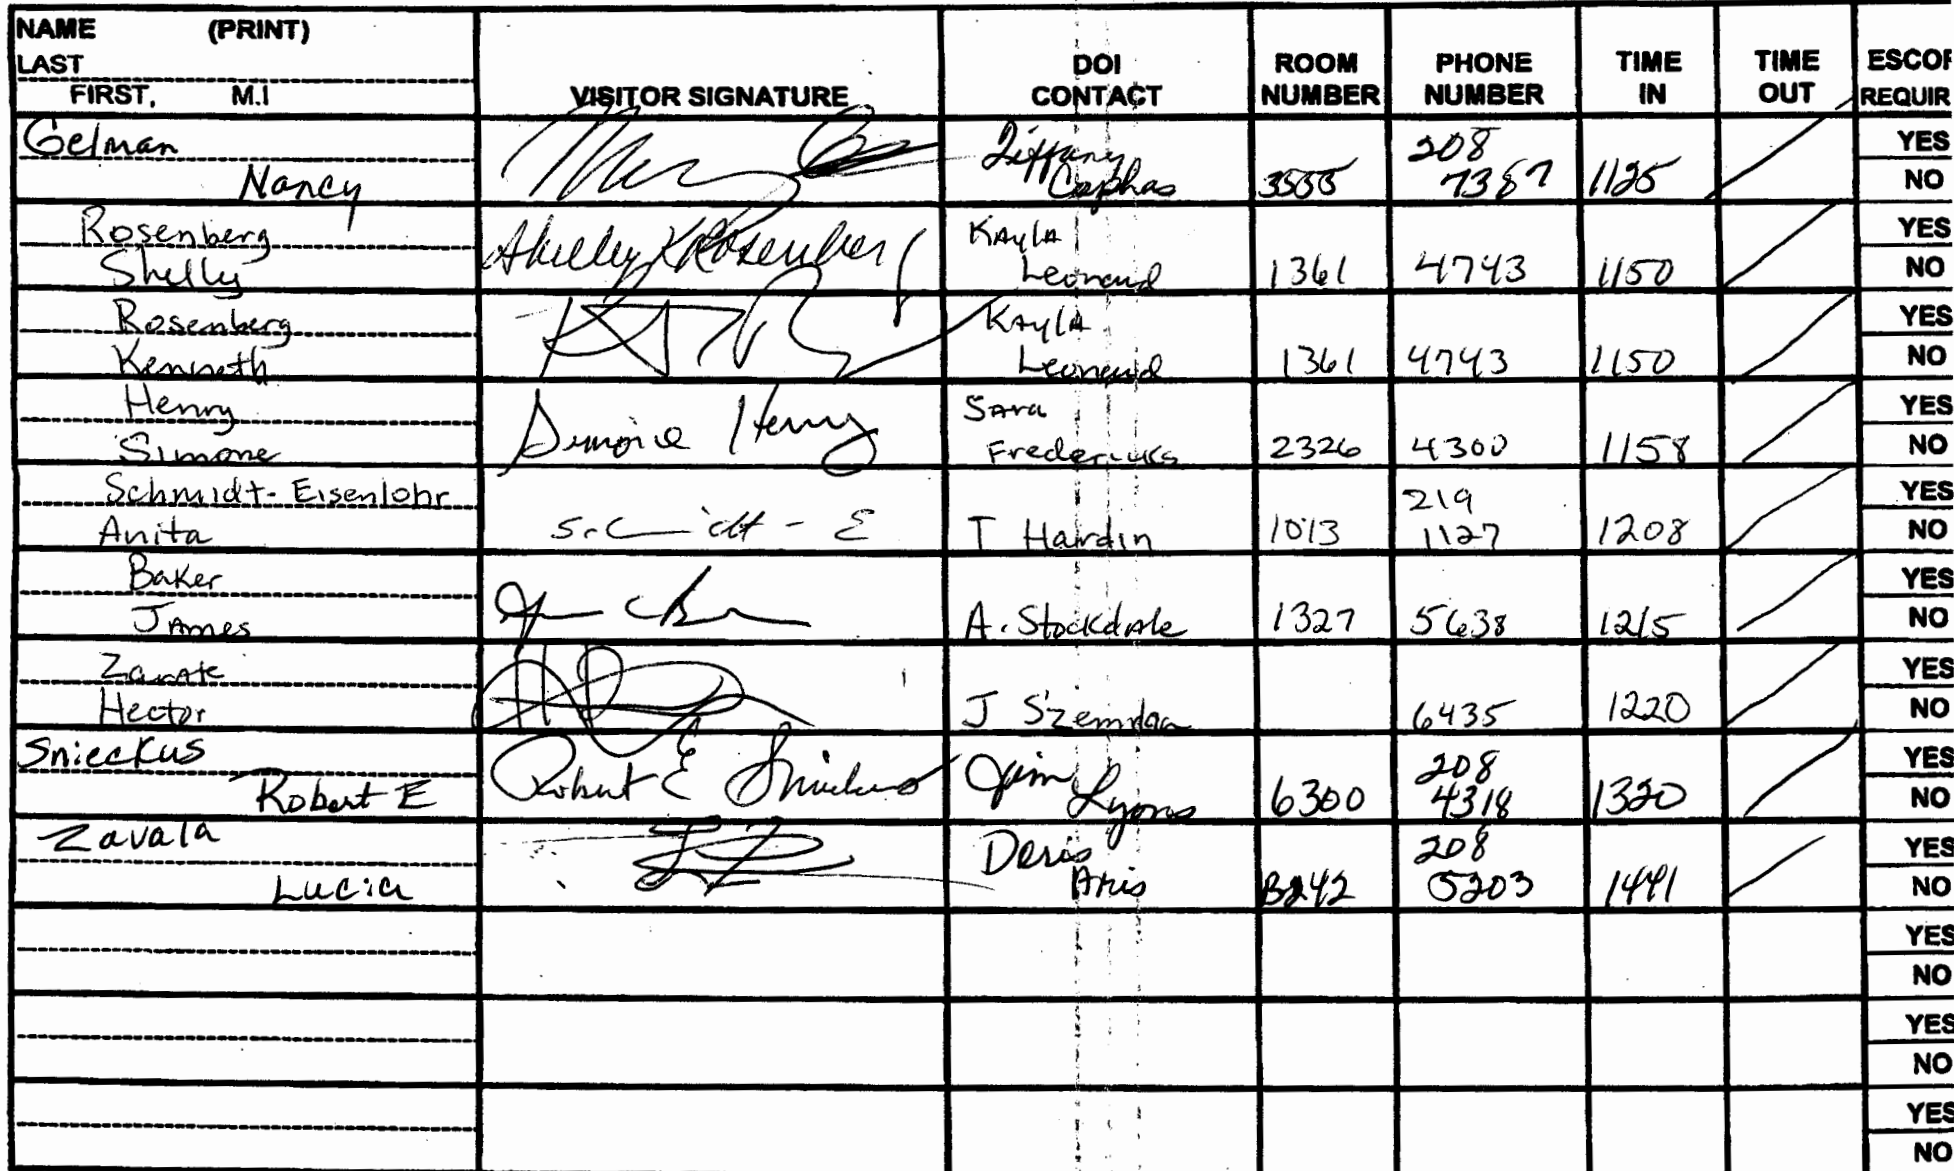 NAME (PRINT)
LAST
FIRST, M.I
VISITOR SIGNATURE
DOI CONTACT
ROOM NUMBER
PHONE NUMBER
TIME IN
TIME OUT
ESCOR
REQUIR
Gelman
Nancy
Tiffany
Cephas
208
7387
1125
YES
NO
Rosenberg
Shelly
Shelley K Rosenberg
Kayla
Leonard
1361
4743
1150
YES
NO
Rosenberg
Kenneth
Kayla
Leonard
1361
4743
1150
YES
NO
Henry
Simone
Simone Henry
Sara
Fredericks
2326
4300
1158
YES
NO
Schmidt-Eisenlohr
Anita
T Hardin
1013
219
1127
1208
YES
NO
Baker
James
A. Stockdale
1327
5638
1215
YES
NO
Zarate
Hector
J
6435
1220
YES
NO
Snieckus
Robert E
Robert E Snieckus
Jim
Lyons
6300
208
4318
1320
YES
NO
Zavala
Lucia
208
5203
1441
YES
NO
YES
NO
YES
NO
YES
NO